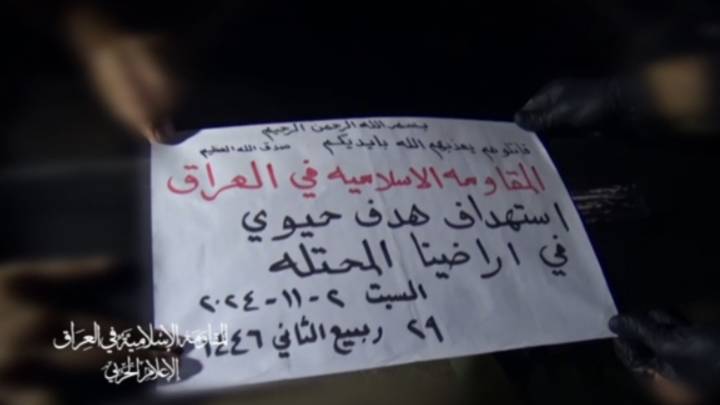 بسم الله الرحمن الرحيم
قاتلوهم يعذبهم الله بايديكم صدق الله العظيم
المقاومه الاسلاميه في العراق
استهداف هدف حيوي
في اراضينا المحتله
السبت ٢-١١-٢٠٢٤
٢٩ ربيع الثاني ١٤٤٦
المقاومة الإسلامية في العراق
الإعلام الحربي